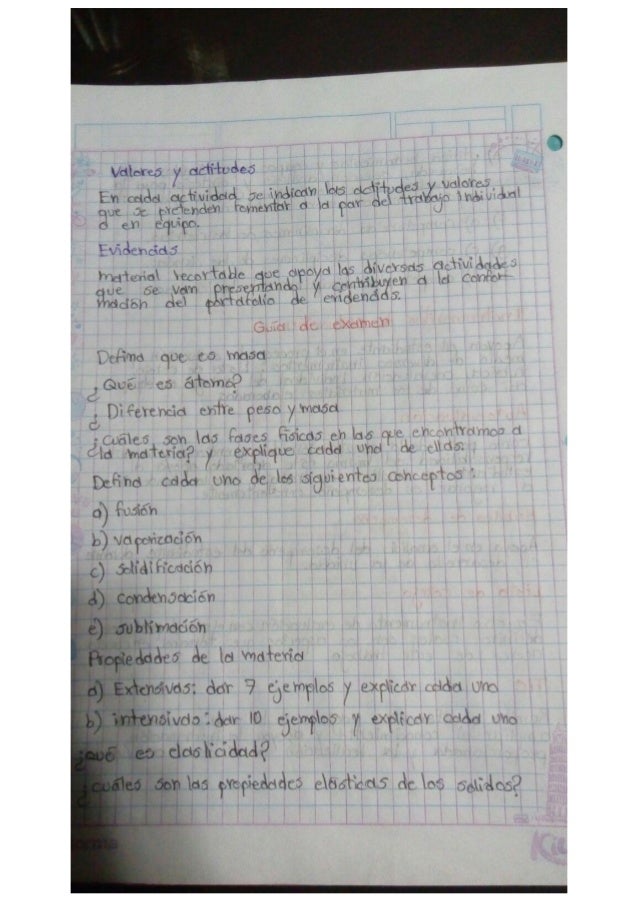 Valores y actitudes
En cada actividad se indican las actitudes y valores
que se pretenden fomentar a la par del trabajo individual
o en equipo.
Evidencias
material recortable que apoya las diversas actividades
que se van presentando y contribuyen a la confor
mación del portafolio de evidencias.
Guia de examen
Defina que es masa
¿Qué es átomo?
¿Diferencia entre peso y masa
¿cuáles son las fases fisicas en las que encontramos a
la materia? y explique cada una de ellas:
Defina cada uno de los siguientes conceptos:
a) fusión
b) vaporización
c) solidificación
d) condensación
e) sublimación
Propiedades de la materia
a) Extensivas: dar 7 ejemplos y explicar cada uno
b) intensivas: dar 10 ejemplos y explicar cada uno
¿qué es elasticidad?
¿cuáles son las propiedades elásticas de los solidos?